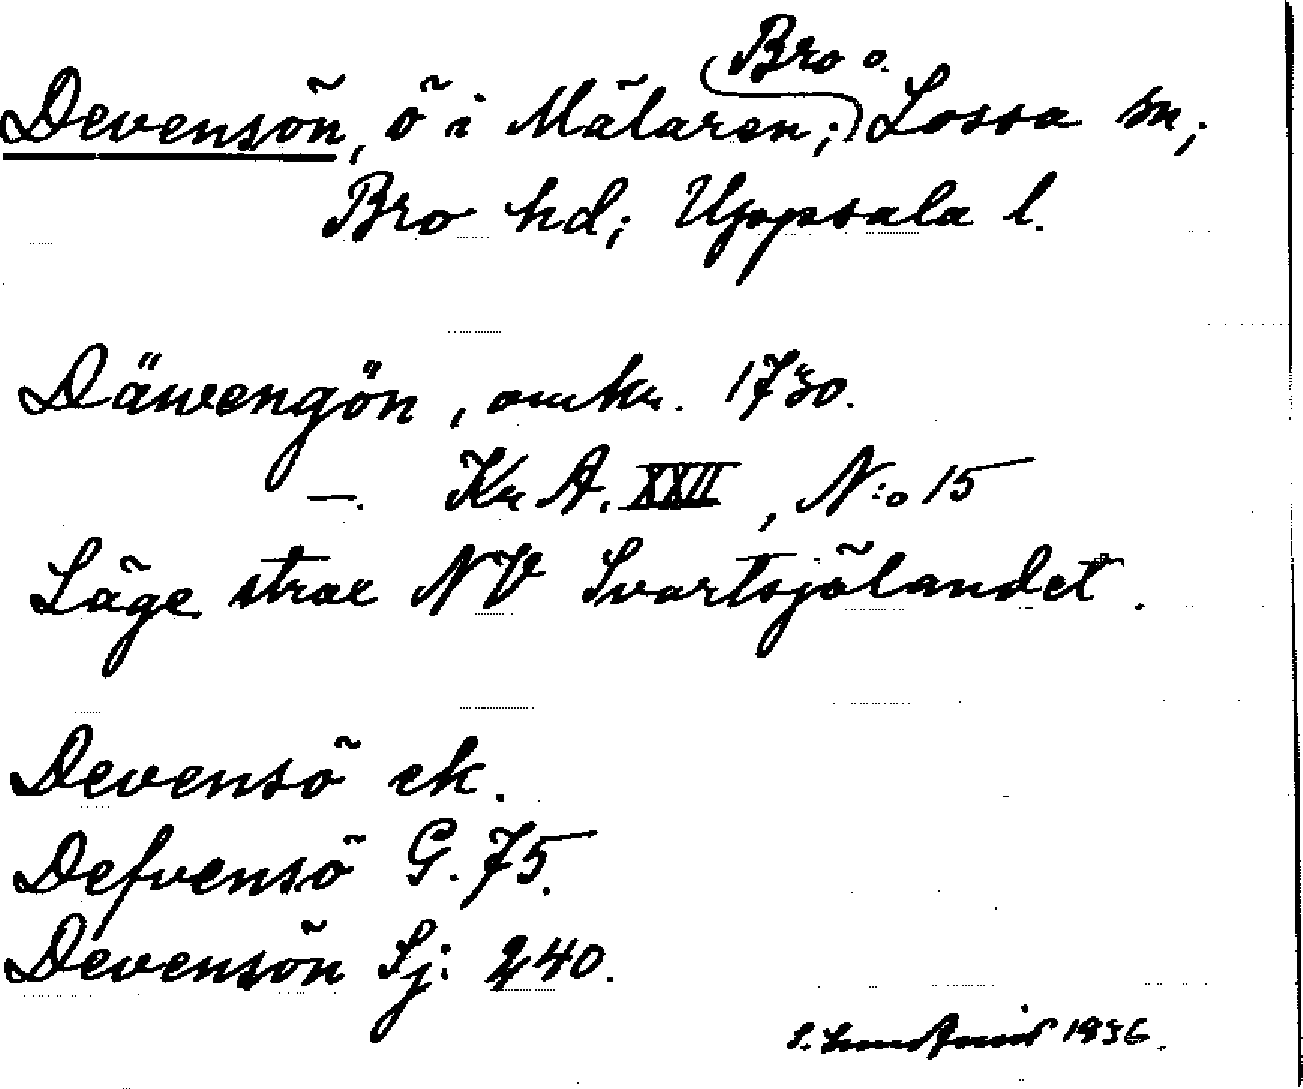 Bro o.
Devensön, ö i Mälaren; Lossa sn;
Bro hd; Uppsala l.
Däwengön, omkr. 1730.
—. Kr A. XXII, N:o 15
Läge strax NV Svartsjölandet.
Devensö ek.
Defvensö G. 75.
Devensön Sj: 240.
1936.